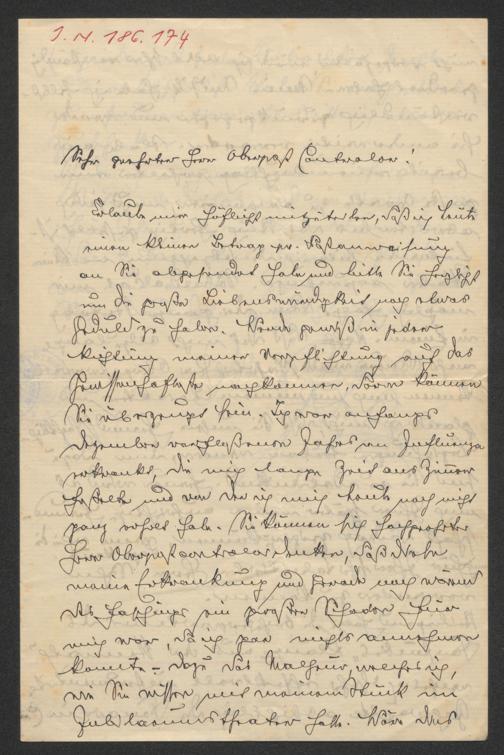 I. N. 186.174
Sehr geehrter Herr Oberpost Controlor!
Erlaube mir höflichst mitzuteilen, daß ich heute
einen kleinen Betrag pr. Postanweisung
an Sie abgesendet habe und bitte Sie herzlichst
um die große Liebenswürdigkeit noch etwas
Geduld zu haben. Werde gewiß in jeder
Richtung meiner Verpflichtung auf das
Gewissenhafteste nachkommen, davon können
Sie überzeugt sein. Ich war anfangs
Dezember verflossenen Jahres an Influenza
erkrankt, die mich lange Zeit ans Zimmer
fesselte und von der ich mich heute noch nicht
ganz erholt habe. Sie können sich hochgeehrter
Herr Oberpostcontrolor denken, daß diese
meine Erkrankung und gerade noch während
des Faschings ein großer Schaden für
mich war, da ich gar nichts annehmen
konnte – dazu das Malheur, welches ich,
wie Sie wissen mit meinem Stück im
Jubilaeumstheater hatte. Wäre dies